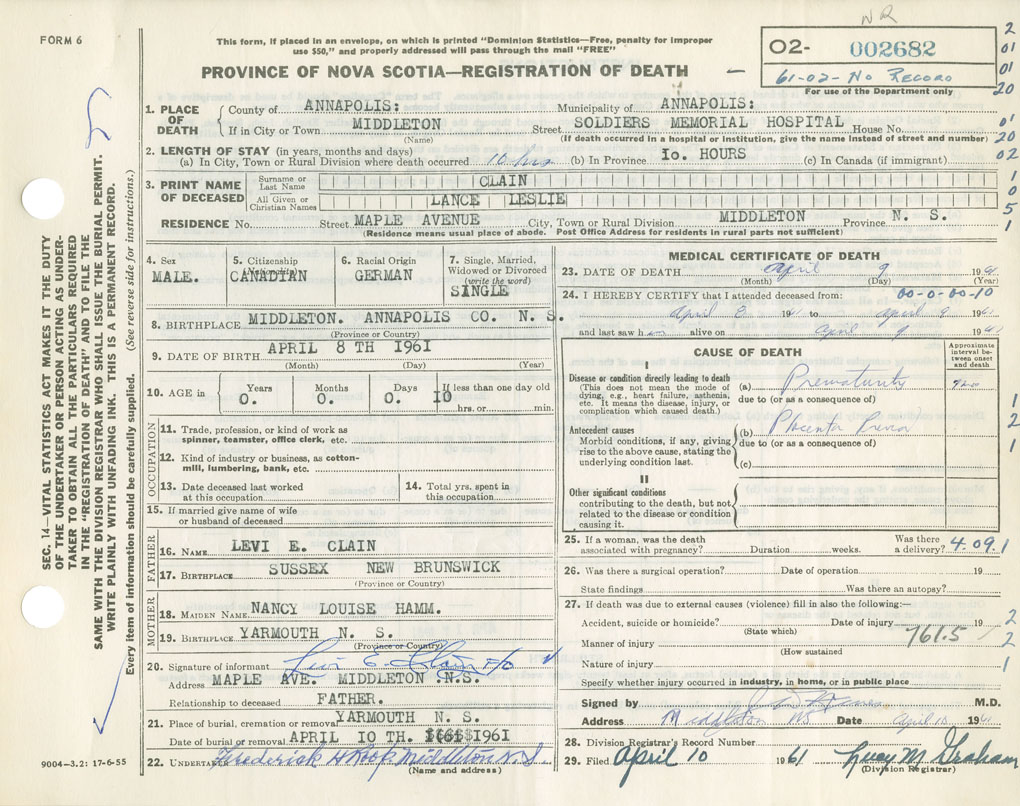 NR
FORM 6
This form, if placed in an envelope, on which is printed "Dominion Statistics—Free, penalty for improper
use $50," and properly addressed will pass through the mail "FREE"
PROVINCE OF NOVA SCOTIA—REGISTRATION OF DEATH
O2- 002682
61-02-No Record
For use of the Department only
2
01
01
20
01
20
02
1
0
5
1
1. PLACE OF DEATH
County of ANNAPOLIS: Municipality of ANNAPOLIS:
If in City or Town MIDDLETON Street SOLDIERS MEMORIAL HOSPITAL House No.
(Name) (If death occurred in a hospital or institution, give the name instead of street and number)
2. LENGTH OF STAY (in years, months and days)
(a) In City, Town or Rural Division where death occurred 10 hrs (b) In Province Io. HOURS (c) In Canada (if immigrant)
3. PRINT NAME OF DECEASED
Surname or Last Name CLAIN
All Given or Christian Names LANCE LESLIE
RESIDENCE No. Street MAPLE AVENUE City, Town or Rural Division MIDDLETON Province N. S.
(Residence means usual place of abode. Post Office Address for residents in rural parts not sufficient)
4. Sex MALE.
5. Citizenship CANADIAN
6. Racial Origin GERMAN
7. Single, Married, Widowed or Divorced (write the word) SINGLE
8. BIRTHPLACE MIDDLETON. ANNAPOLIS CO. N. S.
(Province or Country)
9. DATE OF BIRTH APRIL 8 TH I96I
(Month) (Day) (Year)
10. AGE in Years O. Months O. Days O. If less than one day old IO hrs. or min.
OCCUPATION
11. Trade, profession, or kind of work as
spinner, teamster, office clerk, etc.
12. Kind of industry or business, as cotton-
mill, lumbering, bank, etc.
13. Date deceased last worked
at this occupation
14. Total yrs. spent in
this occupation
15. If married give name of wife
or husband of deceased
FATHER
16. NAME LEVI E. CLAIN
17. BIRTHPLACE SUSSEX NEW BRUNSWICK
(Province or Country)
MOTHER
18. MAIDEN NAME NANCY LOUISE HAMM.
19. BIRTHPLACE YARMOUTH N. S.
(Province or Country)
20. Signature of informant Levi E. Clain
Address MAPLE AVE. MIDDLETON .N.S.
Relationship to deceased FATHER.
21. Place of burial, cremation or removal YARMOUTH N. S.
Date of burial or removal APRIL IO TH. I96I
22. UNDERTAKER Frederick H Roop Middleton N.S.
(Name and address)
9004-3.2: 17-6-55
MEDICAL CERTIFICATE OF DEATH
23. DATE OF DEATH April 9 1961
(Month) (Day) (Year)
24. I HEREBY CERTIFY that I attended deceased from: 00-0-00-10
April 8 1961 to April 9 1961
and last saw him alive on April 9 1961
CAUSE OF DEATH
Approximate interval between onset and death
I
Disease or condition directly leading to death
(This does not mean the mode of
dying, e.g., heart failure, asthenia,
etc. It means the disease, injury, or
complication which caused death.)
(a) Prematurity
due to (or as a consequence of)
Antecedent causes
Morbid conditions, if any, giving
rise to the above cause, stating the
underlying condition last.
(b) Placenta Previa
due to (or as a consequence of)
(c)
II
Other significant conditions
contributing to the death, but not
related to the disease or condition
causing it.
1
2
1
25. If a woman, was the death
associated with pregnancy? Duration weeks. Was there a delivery? 4.09.1
26. Was there a surgical operation? Date of operation 19
State findings Was there an autopsy?
27. If death was due to external causes (violence) fill in also the following:—
Accident, suicide or homicide? Date of injury 19
(State which)
Manner of injury 761.5
(How sustained
Nature of injury
Specify whether injury occurred in industry, in home, or in public place
2
2
1
Signed by M.D.
Address Middleton NS Date April 10 1961
28. Division Registrar's Record Number
29. Filed April 10 1961 Lucy M. Graham
(Division Registrar)
SEC. 14—VITAL STATISTICS ACT MAKES IT THE DUTY
OF THE UNDERTAKER OR PERSON ACTING AS UNDER-
TAKER TO OBTAIN ALL THE PARTICULARS REQUIRED
IN THE "REGISTRATION OF DEATH" AND TO FILE THE
SAME WITH THE DIVISION REGISTRAR WHO SHALL ISSUE THE BURIAL PERMIT.
WRITE PLAINLY WITH UNFADING INK. THIS IS A PERMANENT RECORD.
Every item of information should be carefully supplied. (See reverse side for instructions.)